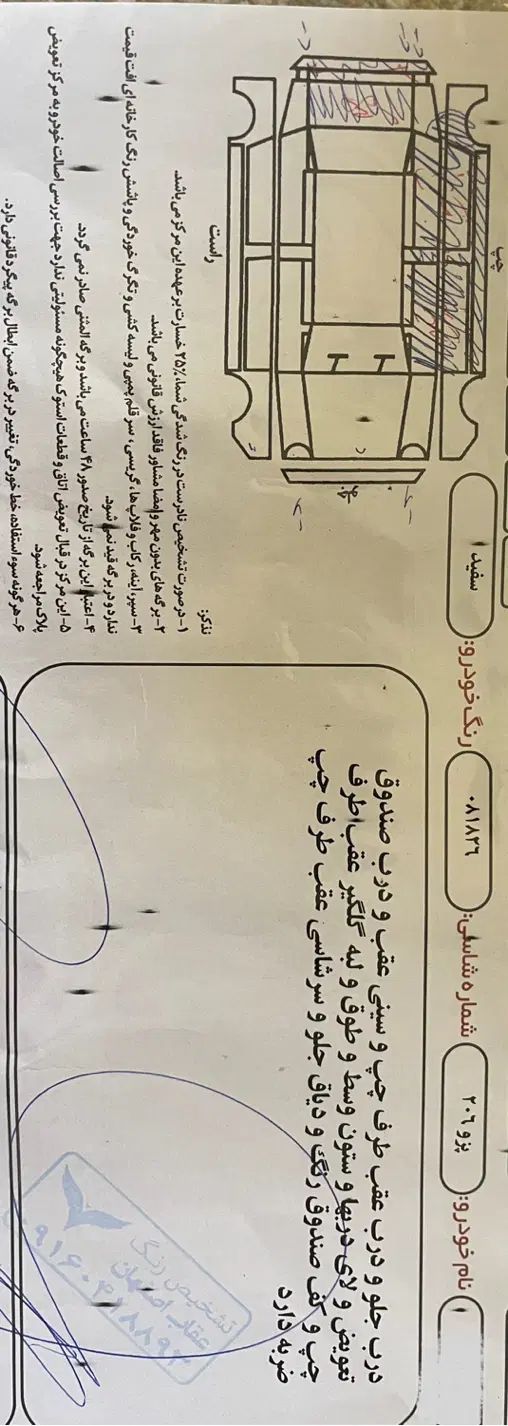 نام خودرو:
پژو ۲۰۶
شماره شاسی:
۰۸۱۸۲۶
رنگ خودرو:
سفید
درب جلو و درب عقب طرف چپ و سینی عقب و درب صندوق
تعویض و لای دربها و ستون وسط و طوق و لبه گلگیر عقب طرف
چپ و کف صندوق رنگ و دیاق جلو و سرشاسی عقب طرف چپ
ضربه دارد
تشخیص رنگ
عقاب اصفهان
چپ
راست
تذکر:
۱- درصورت تشخیص نادرست در رنگ شدگی شما، ۲۵٪ خسارت بر عهده این مرکز می باشد.
۲- برگه های بدون مهر و امضا مشاور فاقد ارزش قانونی می باشد.
۳- سپر، آینه، رکاب و فلاپ ها، گریسی، سر قلم پمپی و لیسه کشی و تگرگ خوردگی و پاشش رنگ کارخانه ای افت قیمت
ندارد و در برگه قید نمی شود.
۴- اعتبار این برگه از تاریخ صدور ۴۸ ساعت می باشد و برگه المثنی صادر نمی گردد.
۵- این مرکز در قبال تعویض اتاق و قطعات استوک هیچگونه مسئولیتی ندارد جهت بررسی اصالت خودرو به مرکز تعویض
پلاک مراجعه شود.
۶- هرگونه سوء استفاده، خط خوردگی، تغییر در برگه ضمن ابطال برگه پیگرد قانونی دارد.